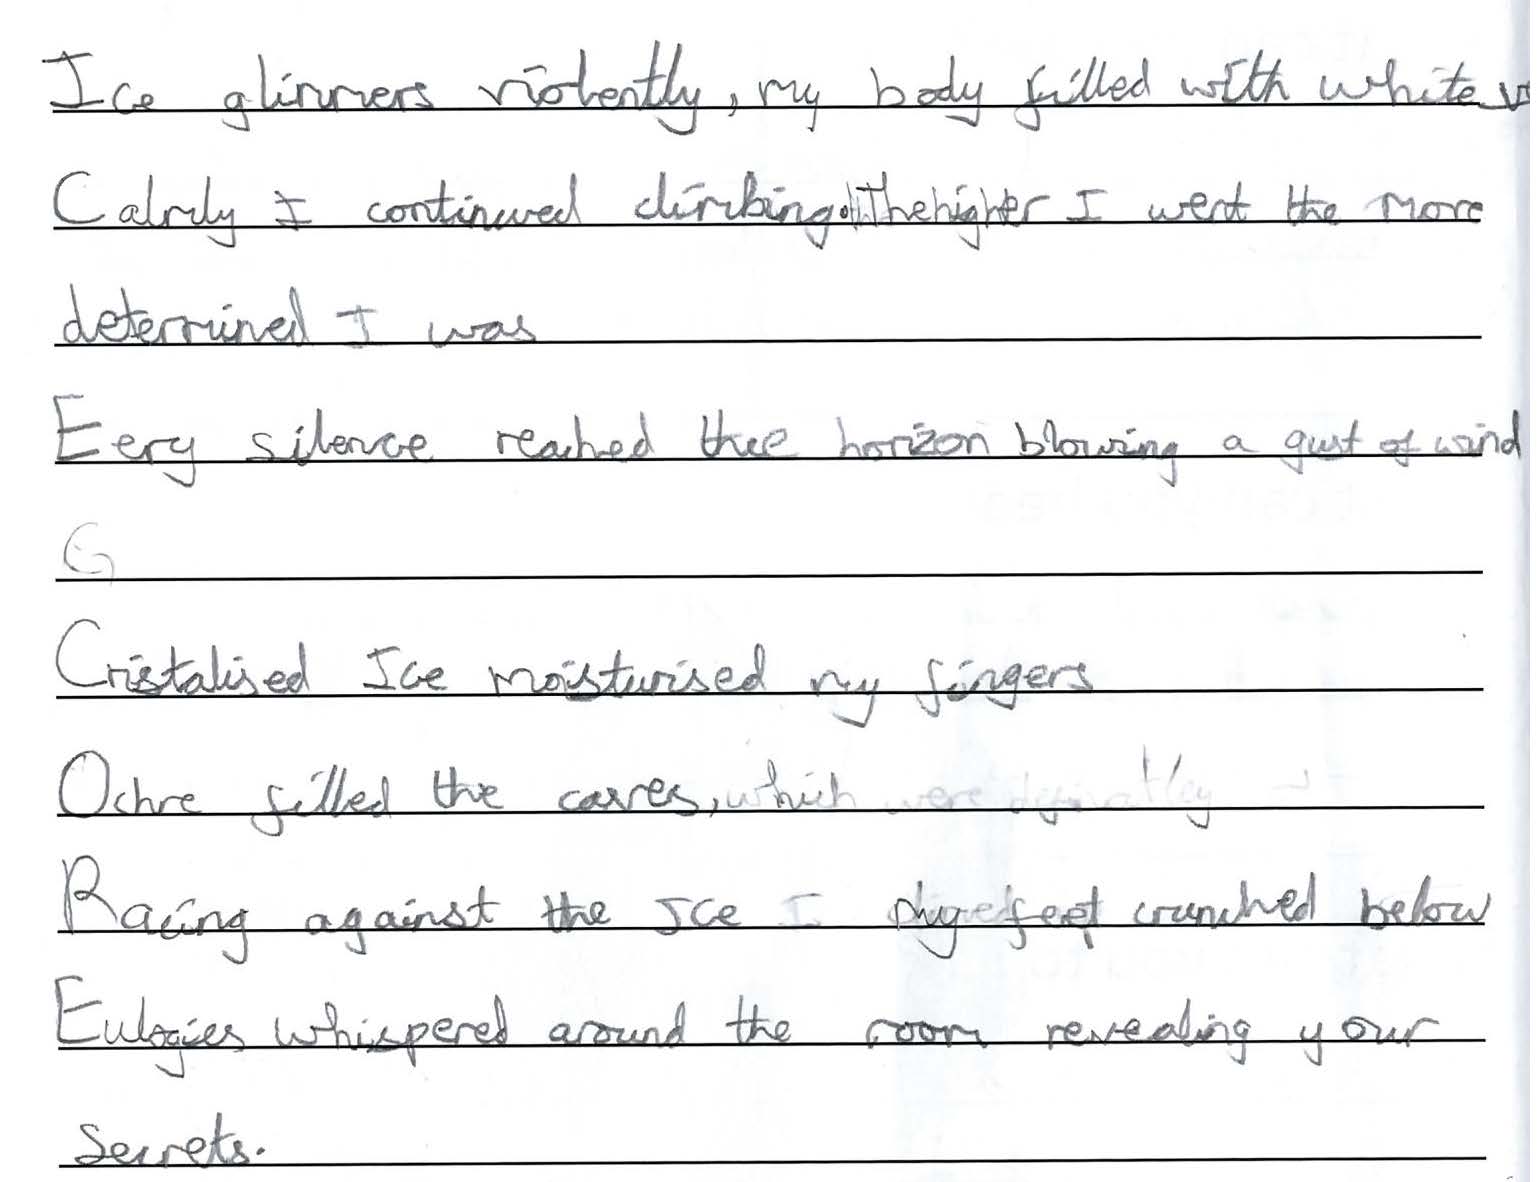 Ice glimmers violently, my body filled with white
Calmly I continued climbing. The higher I went the more
determined I was
Eery silence reached the horizon blowing a gust of wind
G
Cristalised Ice moisturised my fingers
Ochre filled the caves, which were
Racing against the Ice my feet crunched below
Eulogies whispered around the room revealing your
Secrets.